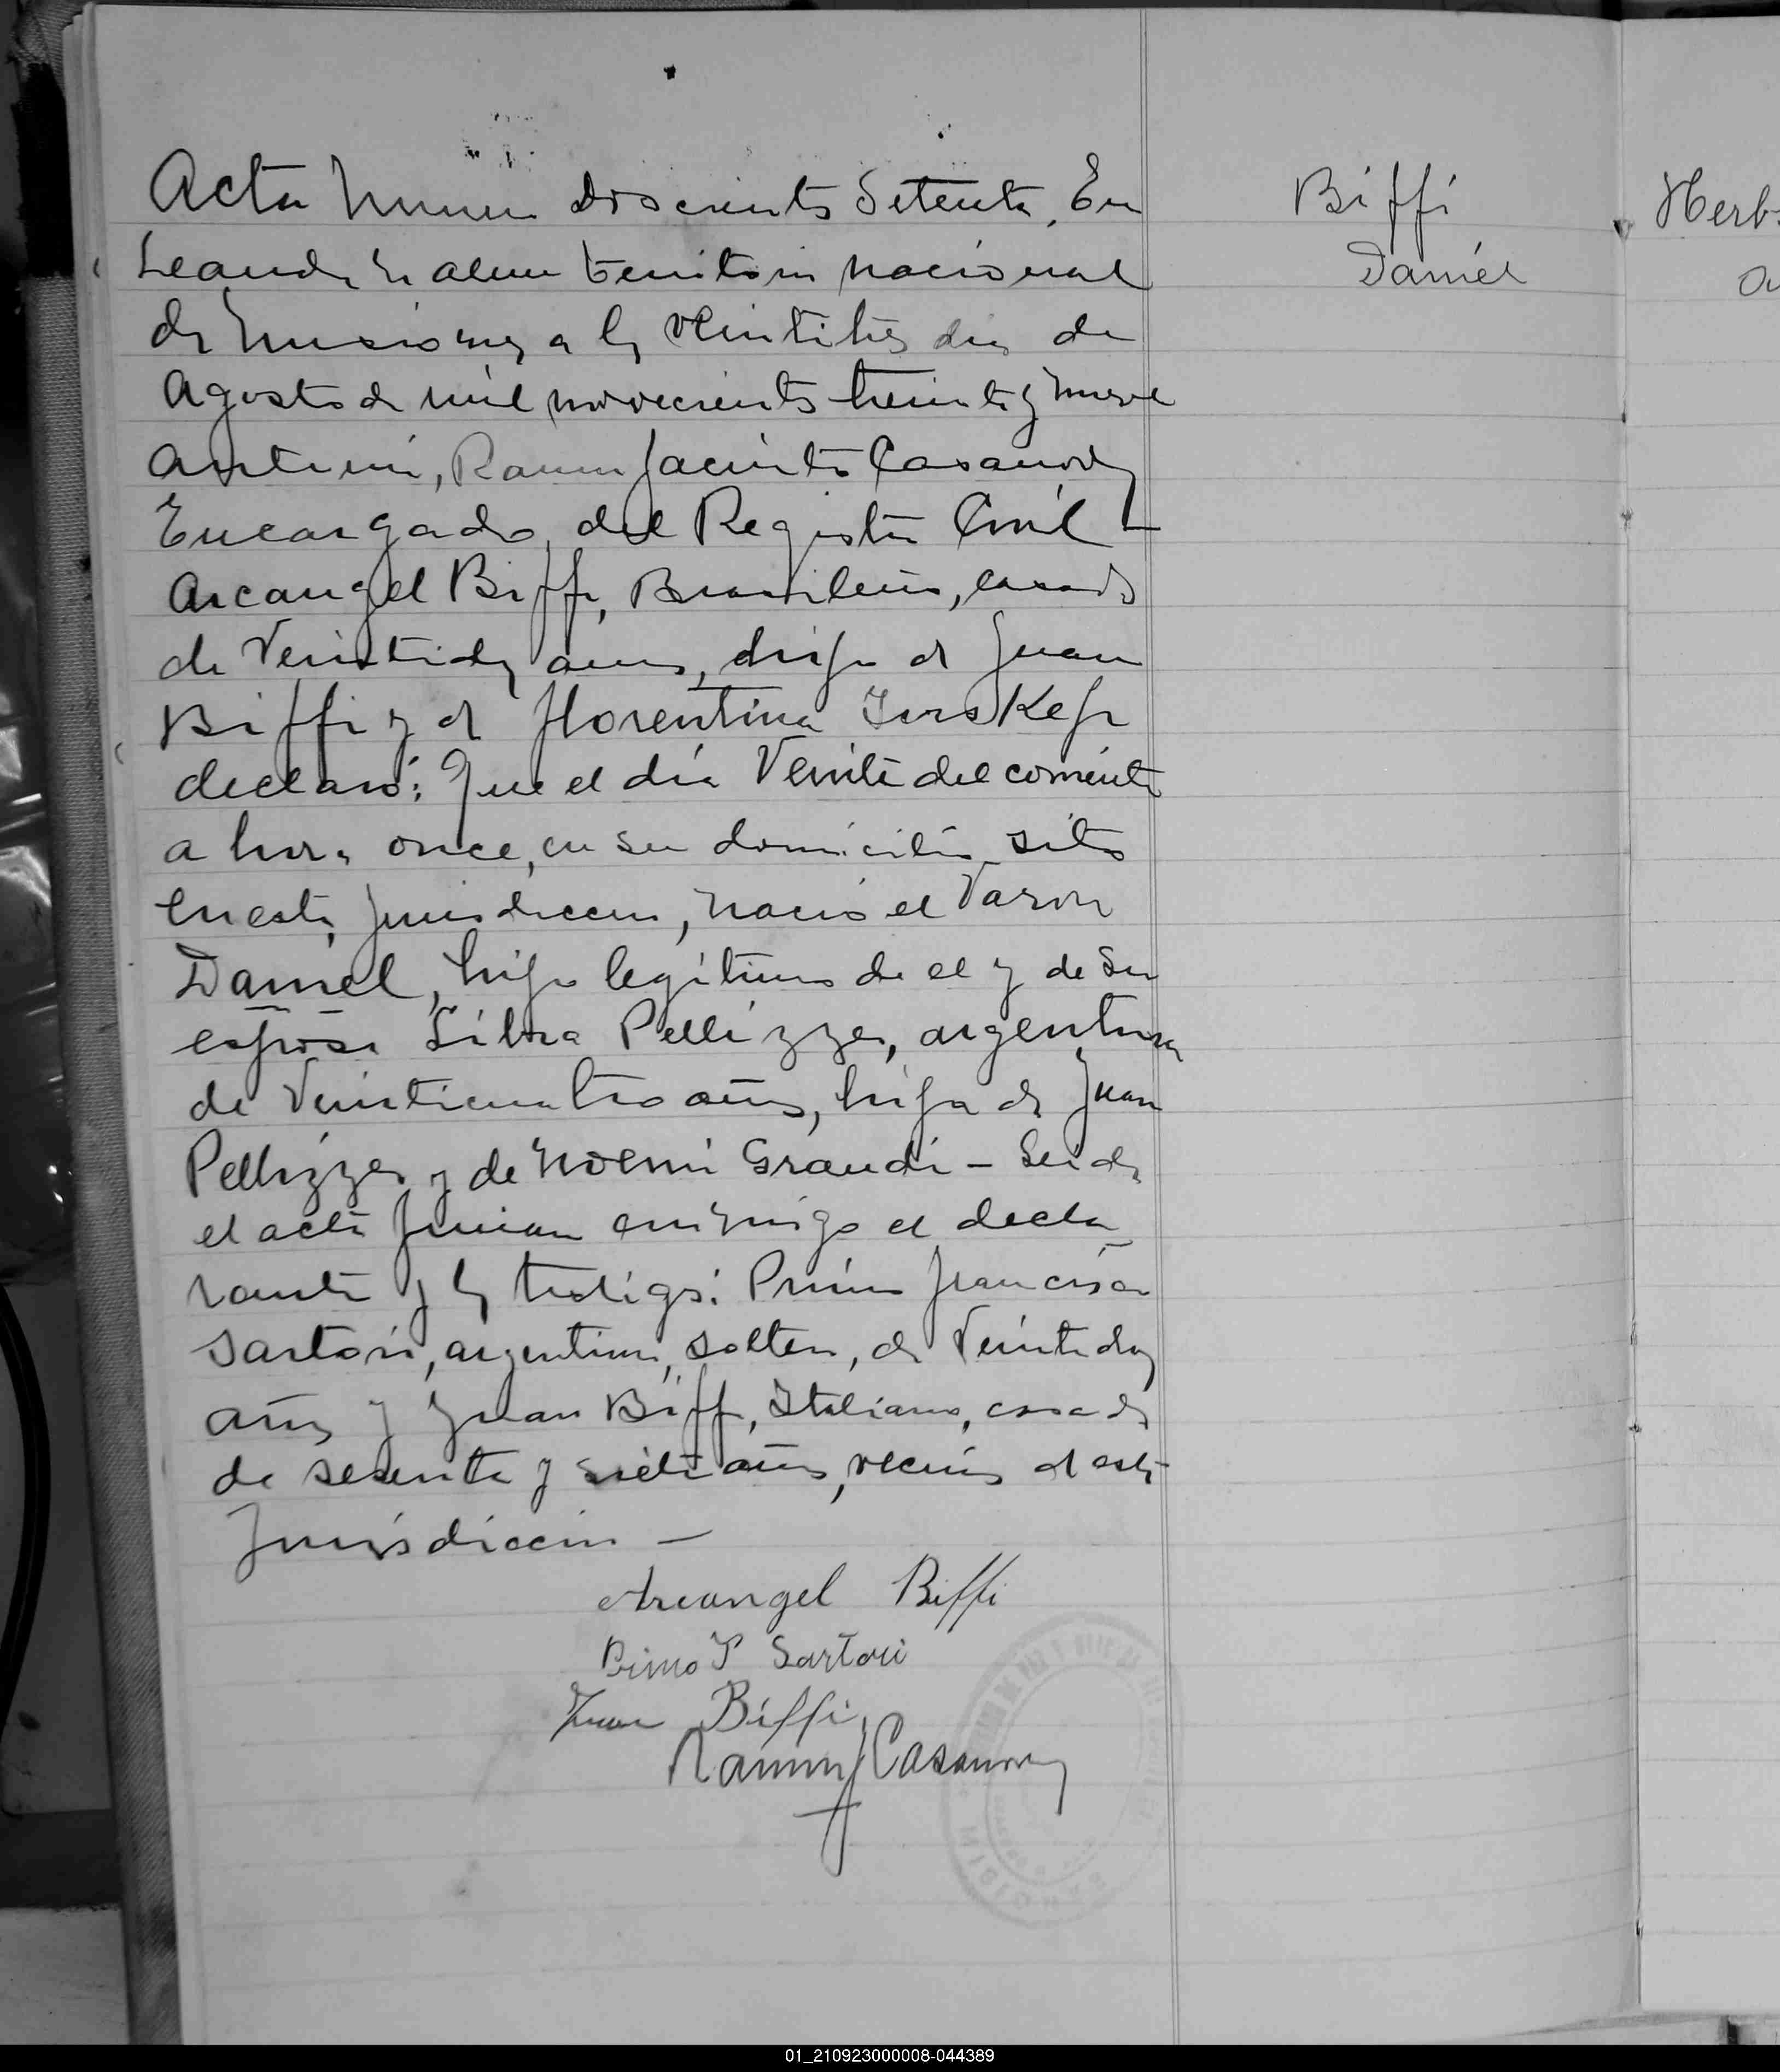 Acta numero doscientos setenta. En
Leandro N alem territorio nacional
de misiones a los veintitres dias de
Agosto de mil novecientos treinta y nueve
ante mi, Ramon Jacinto Casanova
Encargado del Registro Civil -
Arcangel Biffi, Brasilero, casado
de Veintidos años, hijo de Juan
Biffi y de florentina
declaró: Que el día Veinte del corriente
a hora once, en su domicilio sito
en esta jurisdiccion, nació el Varon
Daniel, hijo legítimo de el y de su
esposa Libra Pellizzer, argentina
de Veinticuatro años, hija de Juan
Pellizzer y de Noemi Grandi -
el acta firman conmigo el decla
rante y los testigos: Primo francisco
Sartori, argentino, soltero, de Veintidos
años y Juan Biffi, Italiano, casado
de sesenta y siete años, vecinos de esta
Jurisdiccion -
Arcangel Biffi
Primo F Sartori
Juan Biffi
Ramon J Casanova
Biffi
Daniel
Herb
01_210923000008-044389